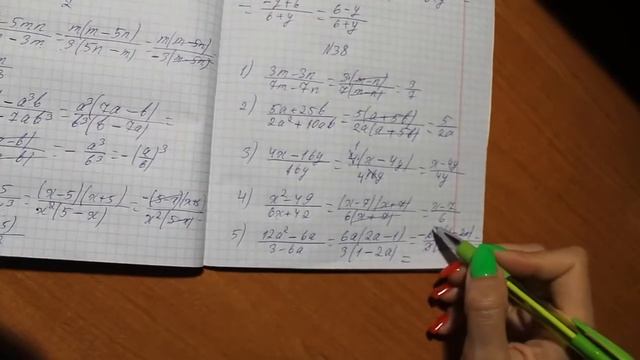 2
- 5mn / - 3m = m(m - 5n) / 3(5n - m) = m(m - 5n) / -3(m - 5n)
- a³b / - 7ab³ = a³(7a - b) / b³(b - 7a) =
= - a³/b³ = -(a/b)³
= (x - 5)(x + 5) / x²(5 - x) = -(5 - x)(x + 5) / x²(5 - x)
= -y + 6 / 6 + y = 6 - y / 6 + y
N38
1) 3m - 3n / 7m - 7n = 3(m - n) / 7(m - n) = 3/7
2) 5a + 25b / 2a² + 10ab = 5(a + 5b) / 2a(a + 5b) = 5/2a
3) 4x - 16y / 16y = 4(x - 4y) / 16y = x - 4y / 4y
4) x² - 49 / 6x + 42 = (x - 7)(x + 7) / 6(x + 7) = x - 7 / 6
5) 12a² - 6a / 3 - 6a = 6a(2a - 1) / 3(1 - 2a) =